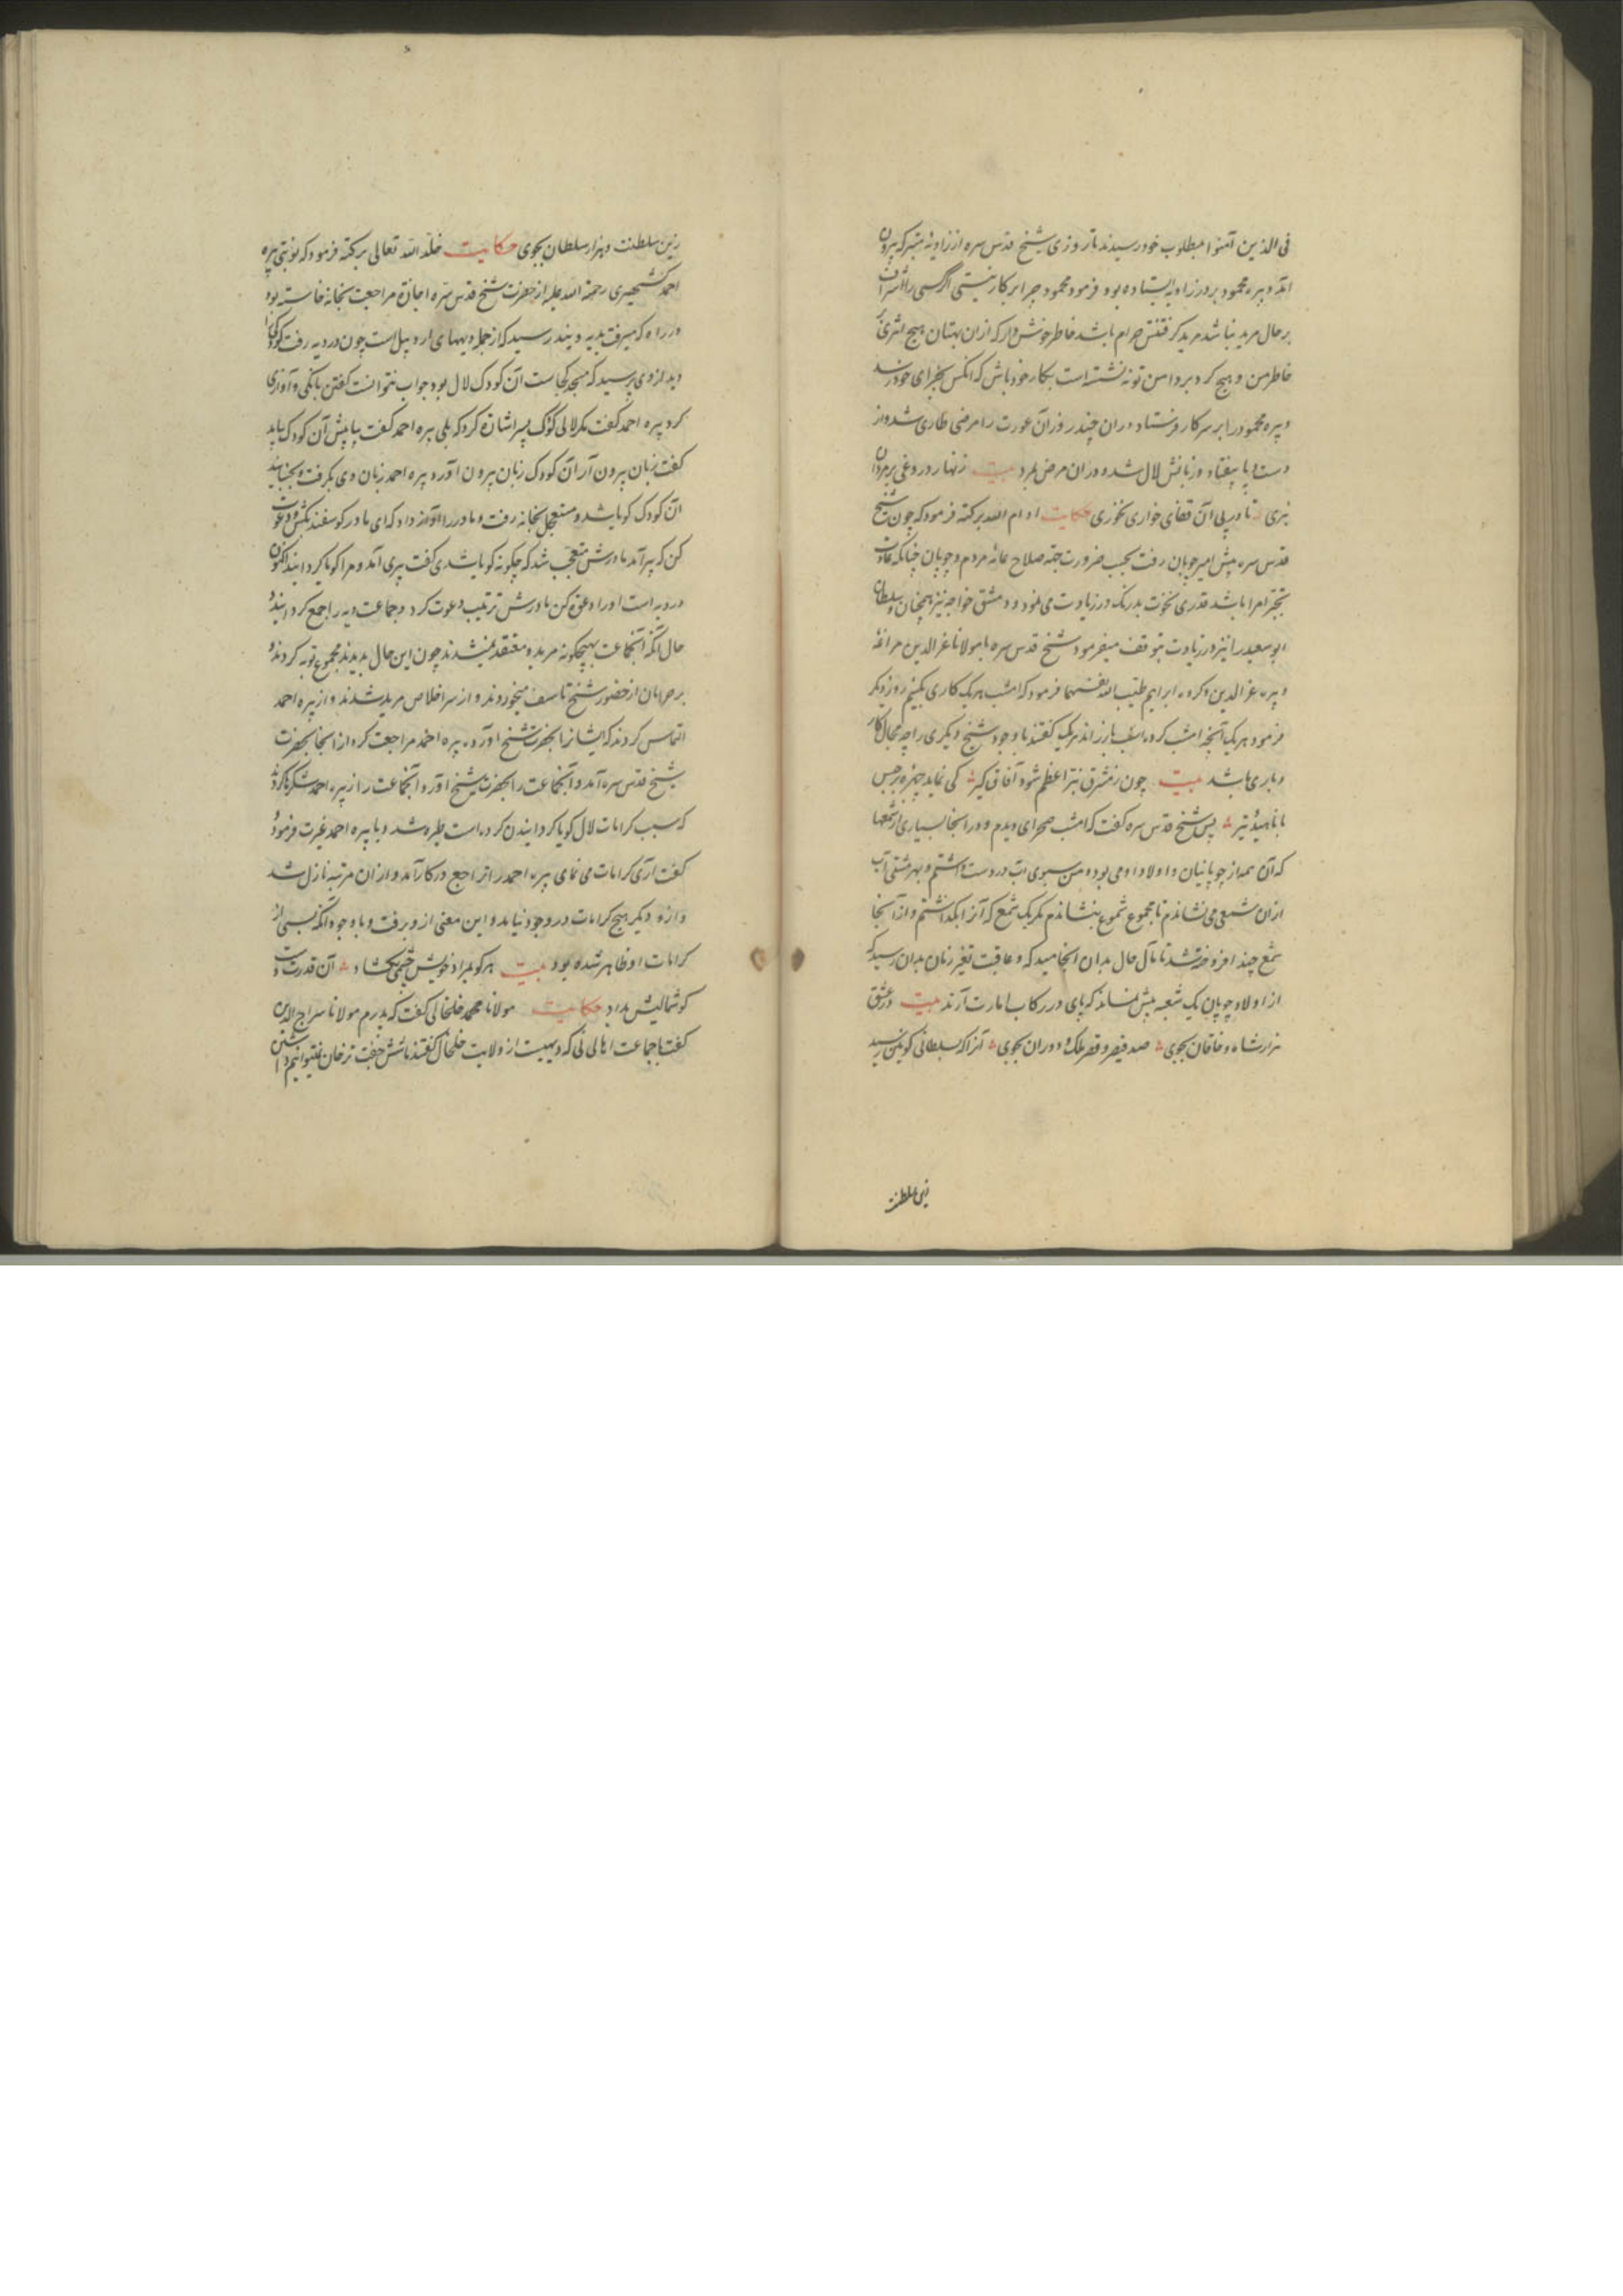 فی الذین آمنوا بمطلوب خود رسیدند تا روزی شیخ قدس سره از زاویهٔ متبرکه بیرون
آمد و پیره محمود بر در زاویه ایستاده بود فرمود محمود چرا بر کار نیستی اگر کسی را اشراف
بر حال مرید نباشد مرید گرفتنش حرام باشد خاطر خوش دار که ازان بهتان هیچ اثری بر
خاطر من و هیچ گرد بر دامن تو ننشسته است بکار خود باش که آنکس بجزای خود رسد
و پیره محمود را بر سر کار فرستاد دران چند روز آن عورت را مرضی طاری شد و از
دست و پا بیفتاد و زبانش لال شد و دران مرض بمرد بیت زنهار دروغی بر مردان
نبری تا در پی آن قفای خواری نخوری حکایت ادام الله برکته فرمود که چون شیخ
قدس سره پیش امیر چوپان رفت بحسب ضرورت جهة صلاح عامهٔ مردم و چوپان چنانکه عادت
تجبر امرا باشد قدری نخوت بدرنگ در زیادت می‌نمود و دمشق خواجه نیز همچنان و سلطان
ابو سعید را نیز در زیادت توقف میفرمود شیخ قدس سره با مولانا عز الدین مراغهٔ
و پیره عز الدین و کرده ابراهیم طیب الله نفسهما فرمود که امشب هر یک کاری بکنیم روز دیگر
فرمود هر یک آنچه امشب کرده‌اند باز راند هر یک گفتند با وجود شیخ دیگری را چه مجال کار
و باری باشد بیت چون ز مشرق نیر اعظم شود آفاق گیر کی نماید چهره برجیس
با ناهید و تیر پس شیخ قدس سره گفت که امشب صحرای دیدم و در آنجا بسیاری از شمعها
که آن همه از چوپانیان و اولاد او می بود و من سبوی آب در دست داشتم و بهر مشتی آب
ازان شمعی می نشاندم تا مجموع شموع بنشاندم مگر یک شمع که آنرا بگذاشتم و از آنجا
شمع چند افروخته شد تا مآل حال بدان انجامید که و عاقبت تغیر زمان بدان رسید که
از اولاد چوپان یک شعبه بیش نماند که پای در رکاب امارت آرند بیت در عشق
هزار شاه و خاقان بجوی صد قیصر و قصر ملک و دوران بجوی آنرا که سلطانی کونین رسید
زین سلطنت
زین سلطنت و هزار سلطان بجوی حکایت خلد الله تعالی برکته فرمود که نوبتی پیره
احمد رحمة الله علیه از حضرت شیخ قدس سره اجازة مراجعت بخانه خواسته بود
در راه که میرفت بدیه رسید که از جمله دیههای اردبیل است چون در دیه رفت کودکی را
دید از وی پرسید که مسجد کجاست آن کودک لال بود جواب نتوانست گفتن بانگی و آوازی
کرد پیره احمد گفت مگر لالی کودک بسر اشارة کرد که بلی پیره احمد گفت بیا پیش آن کودک بیامد
گفت زبان بیرون آر آن کودک زبان بیرون آورد پیره احمد زبان وی بگرفت و بجنبانید
آن کودک گویا شد و مستعجل بخانه رفت و مادر را آواز داد که ای مادر گوسفند بکش و دعوت
کن که پیر آمد مادرش متعجب شد که چگونه گویا شدی گفت پیری آمد و مرا گویا گردانید اکنون
در دیه است او را دعوة کن مادرش ترتیب دعوت کرد و جماعت دیه را جمع گردانید و
حال آنکه آن جماعت بهیچگونه مرید و معتقد نمیشدند چون این حال بدیدند مجموع توبه کردند و
بر حرمان از حضور شیخ تاسف میخوردند و از سر اخلاص مرید شدند و از پیره احمد
التماس کردند که ایشانرا بحضرت شیخ آورد پیره احمد مراجعت کرد از آنجا بحضرت
شیخ قدس سره آمد و آن جماعت را بحضرت شیخ آورد و آن جماعت را از پیره احمد شکرها کردند
که سبب کرامات لال گویا گردانیدن کرده است طیره شد و با پیره احمد غیرت فرمود و
گفت آری کرامات می نمای پیره احمد را تراجع در کار آمد و ازان مرتبه نازل شد
و ازو دیگر هیچ کرامات در وجود نیامد و این معنی ازو برفت و با وجود آنکه بسی از
کرامات او ظاهر شده بود بیت هر کو بمراد خویش چشمی بگشاد آن قدرت
گوشمالیش بداد حکایت مولانا محمد خلخالی گفت که پدرم مولانا سراج الدین
گفت با جماعت اهالی که دیهیست از ولایت خلخال گفتند شش جفت نمیتوانیم داشتن